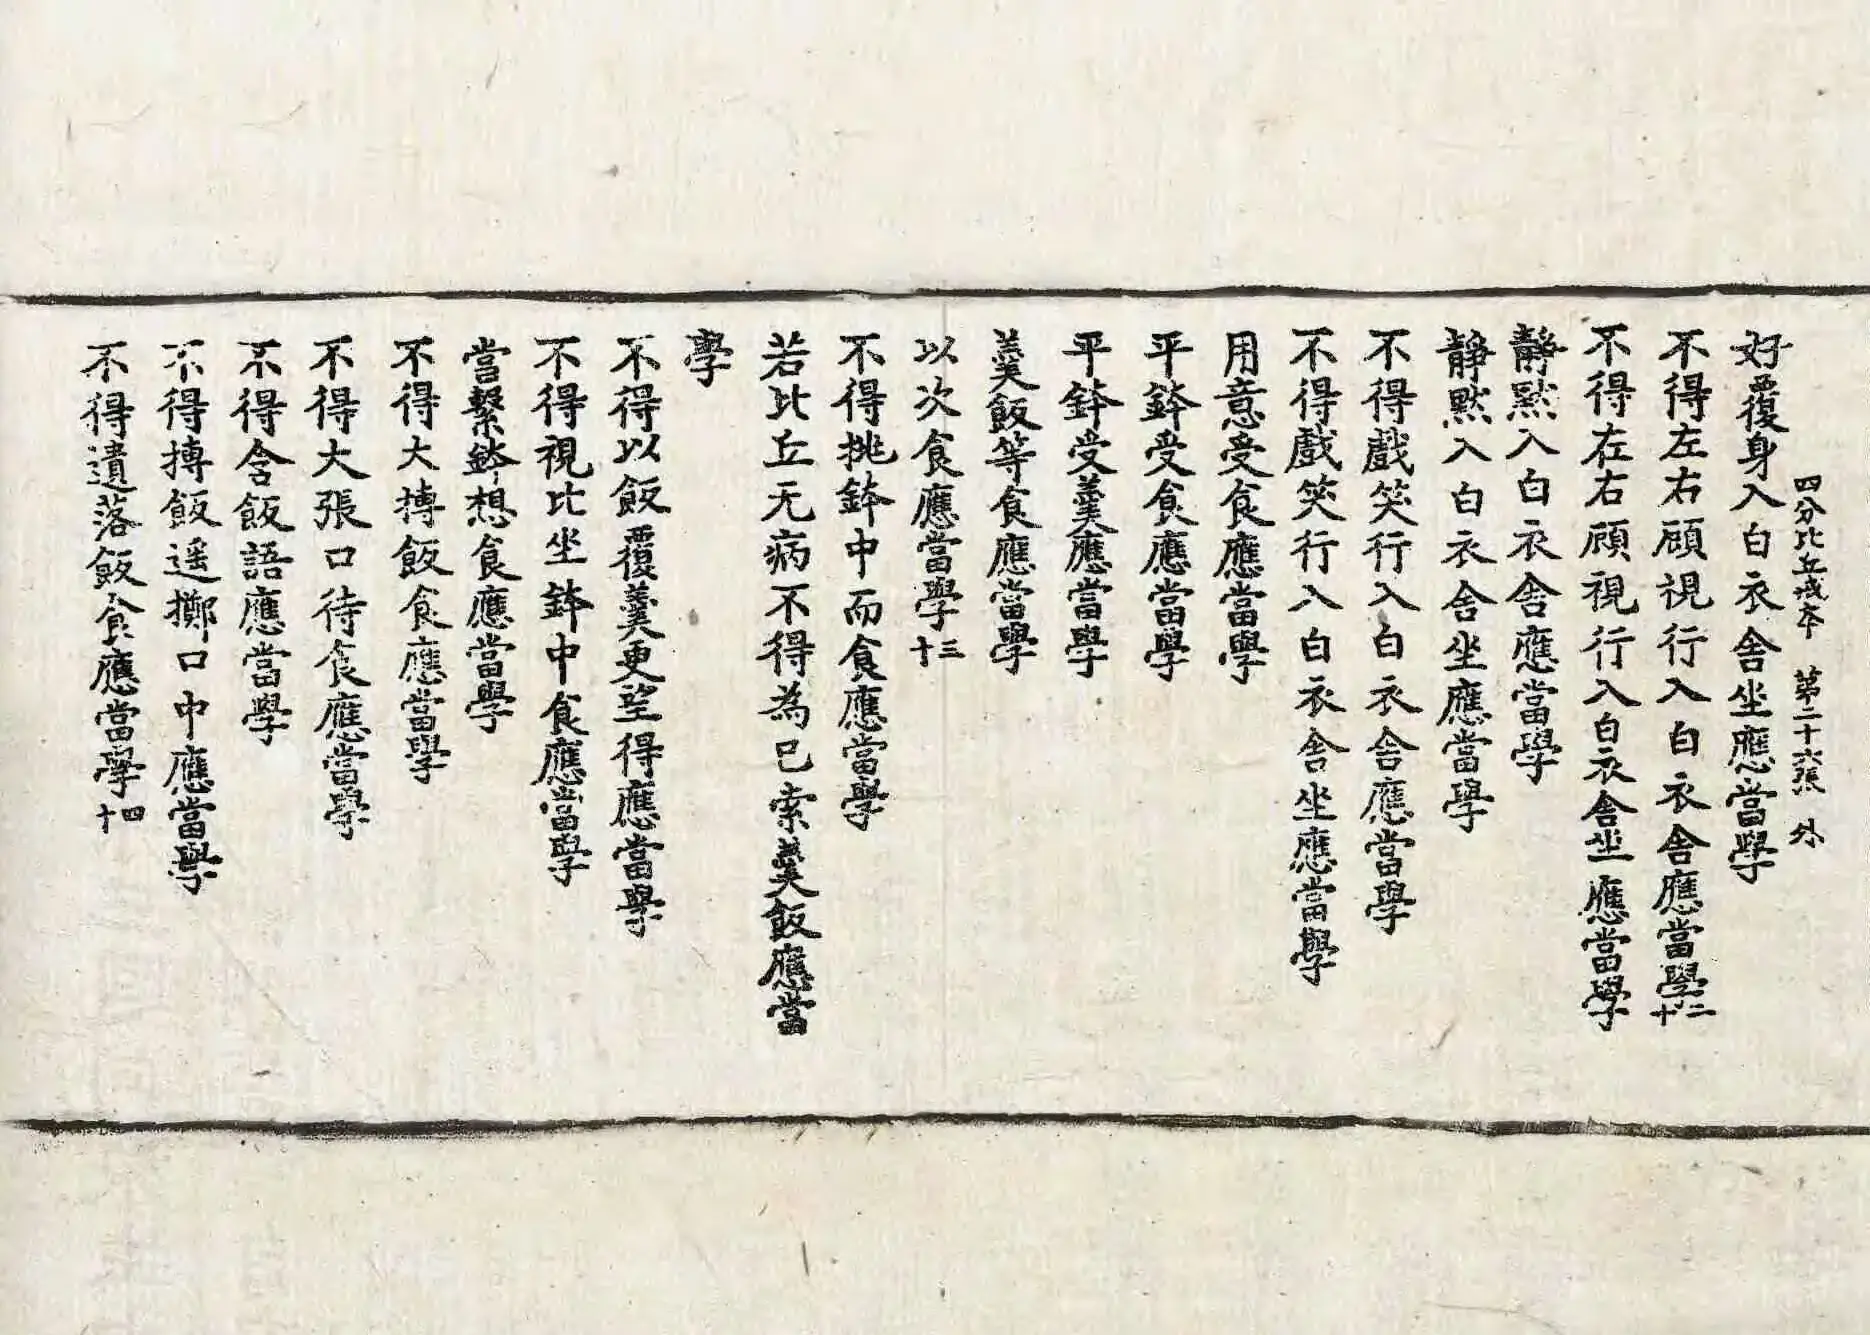 四分比丘戒本 第二十六張 外
好覆身入白衣舍坐應當學
不得左右顧視行入白衣舍應當學二十
不得左右顧視行入白衣舍坐應當學
靜默入白衣舍應當學
靜默入白衣舍坐應當學
不得戲笑行入白衣舍應當學
不得戲笑行入白衣舍坐應當學
用意受食應當學
平鉢受食應當學
平鉢受羹應當學
羹飯等食應當學
以次食應當學三十
不得挑鉢中而食應當學
若比丘无病不得為己索羹飯應當
學
不得以飯覆羹更望得應當學
不得視比坐鉢中食應當學
當繫鉢想食應當學
不得大摶飯食應當學
不得大張口待食應當學
不得含飯語應當學
不得摶飯遥擲口中應當學
不得遺落飯食應當學四十